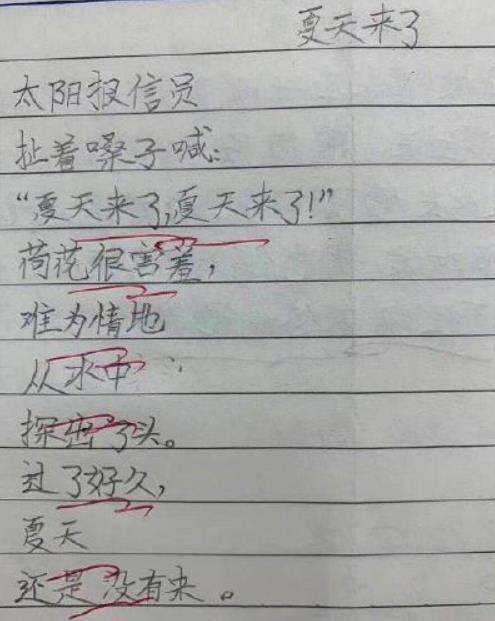 夏天来了
太阳报信员
扯着嗓子喊:
“夏天来了,夏天来了!”
荷花很害羞,
难为情地
从水中
探出了头。
过了好久,
夏天
还是没有来。